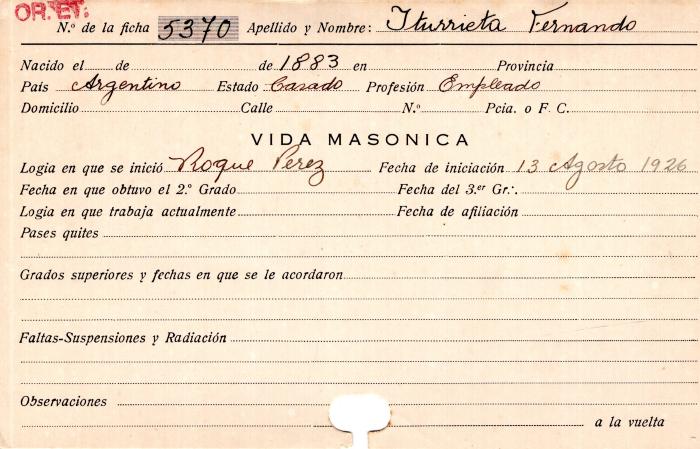 OR. ET.
N.º de la ficha 5370 Apellido y Nombre: Iturrieta Fernando
Nacido el de de 1883 en Provincia
País Argentino Estado Casado Profesión Empleado
Domicilio Calle N.º Pcia. o F. C.
VIDA MASONICA
Logia en que se inició Roque Perez Fecha de iniciación 13 Agosto 1926
Fecha en que obtuvo el 2.º Grado Fecha del 3.er Gr.·.
Logia en que trabaja actualmente Fecha de afiliación
Pases quites
Grados superiores y fechas en que se le acordaron
Faltas-Suspensiones y Radiación
Observaciones
a la vuelta